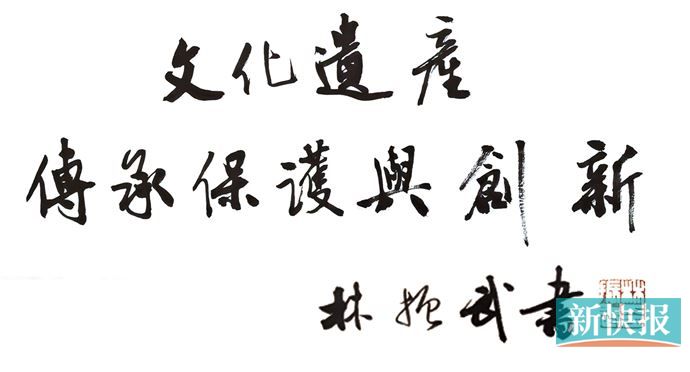 文化遺產
傳承保護與創新
林振武書
新快报